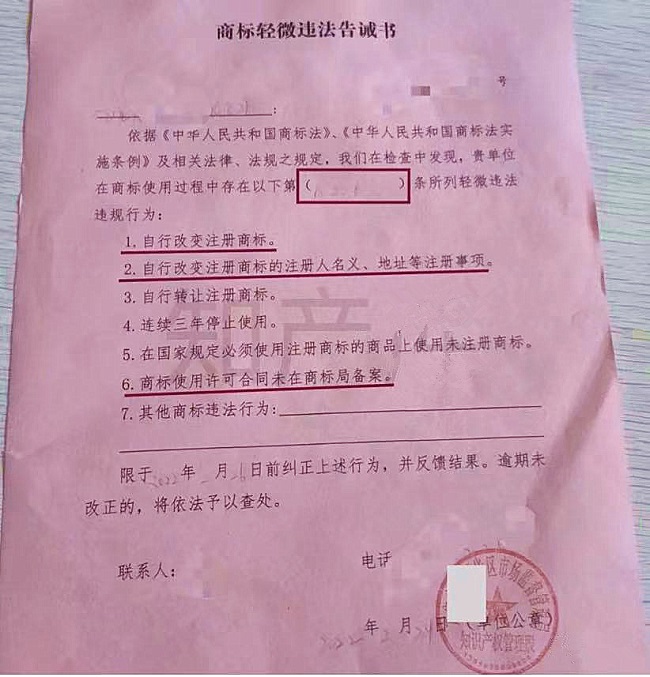 商标轻微违法告诫书
号
:
依据《中华人民共和国商标法》、《中华人民共和国商标法实
施条例》及相关法律、法规之规定，我们在检查中发现，贵单位
在商标使用过程中存在以下第（ ）条所列轻微违法
违规行为：
1. 自行改变注册商标。
2. 自行改变注册商标的注册人名义、地址等注册事项。
3. 自行转让注册商标。
4. 连续三年停止使用。
5. 在国家规定必须使用注册商标的商品上使用未注册商标。
6. 商标使用许可合同未在商标局备案。
7. 其他商标违法行为：
限于2022年 月 日前纠正上述行为，并反馈结果。逾期未
改正的，将依法予以查处。
联系人： 电话
2022年 月 日（单位公章）
区市场监督管
知识产权管理股
知产